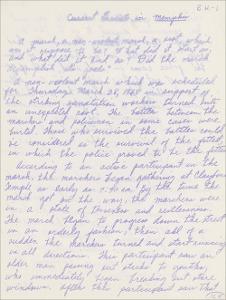 BK-1
Current Events in Memphis
A march, a non-violent march, a riot, which
am I suppose to say? What did it start as,
and what did it end as? Did the
A non-violent march which was scheduled
for Thursday, March 28, 1968 in support of
the striking sanitation workers turned into
an unexpected riot. The battle between the
marchers and policemen, in some cases were
hurted. Those who survived the battle could
be considered as the survival of the fittest
in which the police proved to be the fittest.
According to an active participant in the
march, the marchers began gathering at Clayborn
Temple as early as 7:30 a.m. By the time the
march got on the way, the marchers were
in a state of and restlessness.
The march began to progress down the street
in an orderly fashion, then all of a
sudden the marchers turned and start running
in all directions. This participant saw an
older man passing out sticks to youths,
who immediately began breaking out store
windows. After this participant saw that